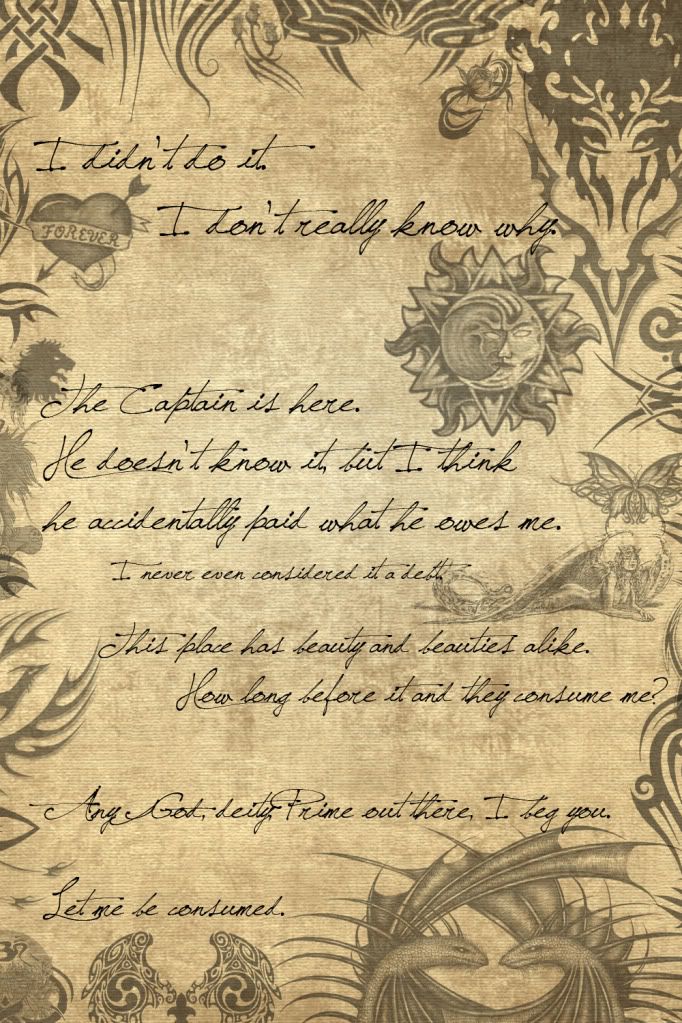 I didn't do it.
I don't really know why.
FOREVER
The Captain is here.
He doesn't know it, but I think
he accidentally paid what he owes me.
I never even considered it a debt.
This place has beauty and beauties alike.
How long before it and they consume me?
Any God, deity, Prime out there, I beg you.
Let me be consumed.